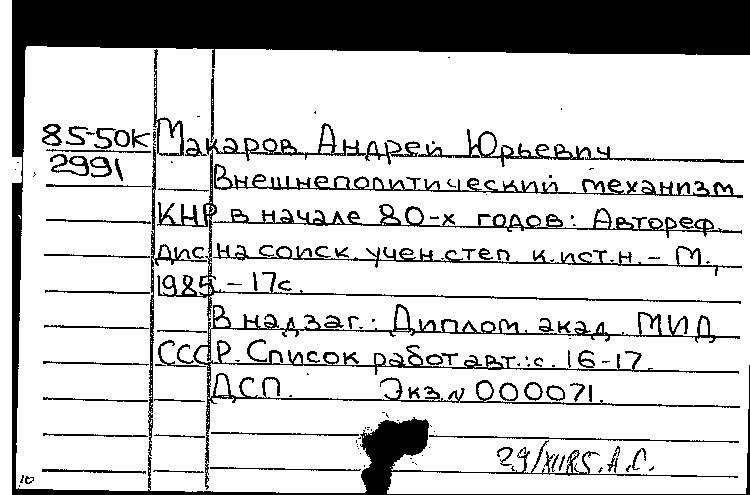 85-50К Макаров, Андрей Юрьевич
2991
Внешнеполитический механизм
КНР в начале 80-х годов: Автореф.
дис. на соиск. учен. степ. к. ист. н. - М.,
1985. - 17с.
В надзаг.: Диплом. акад. МИД
СССР. Список работ авт.: с. 16-17.
ДСП. Экз. N 000071.
29/XII85. А.С.
10